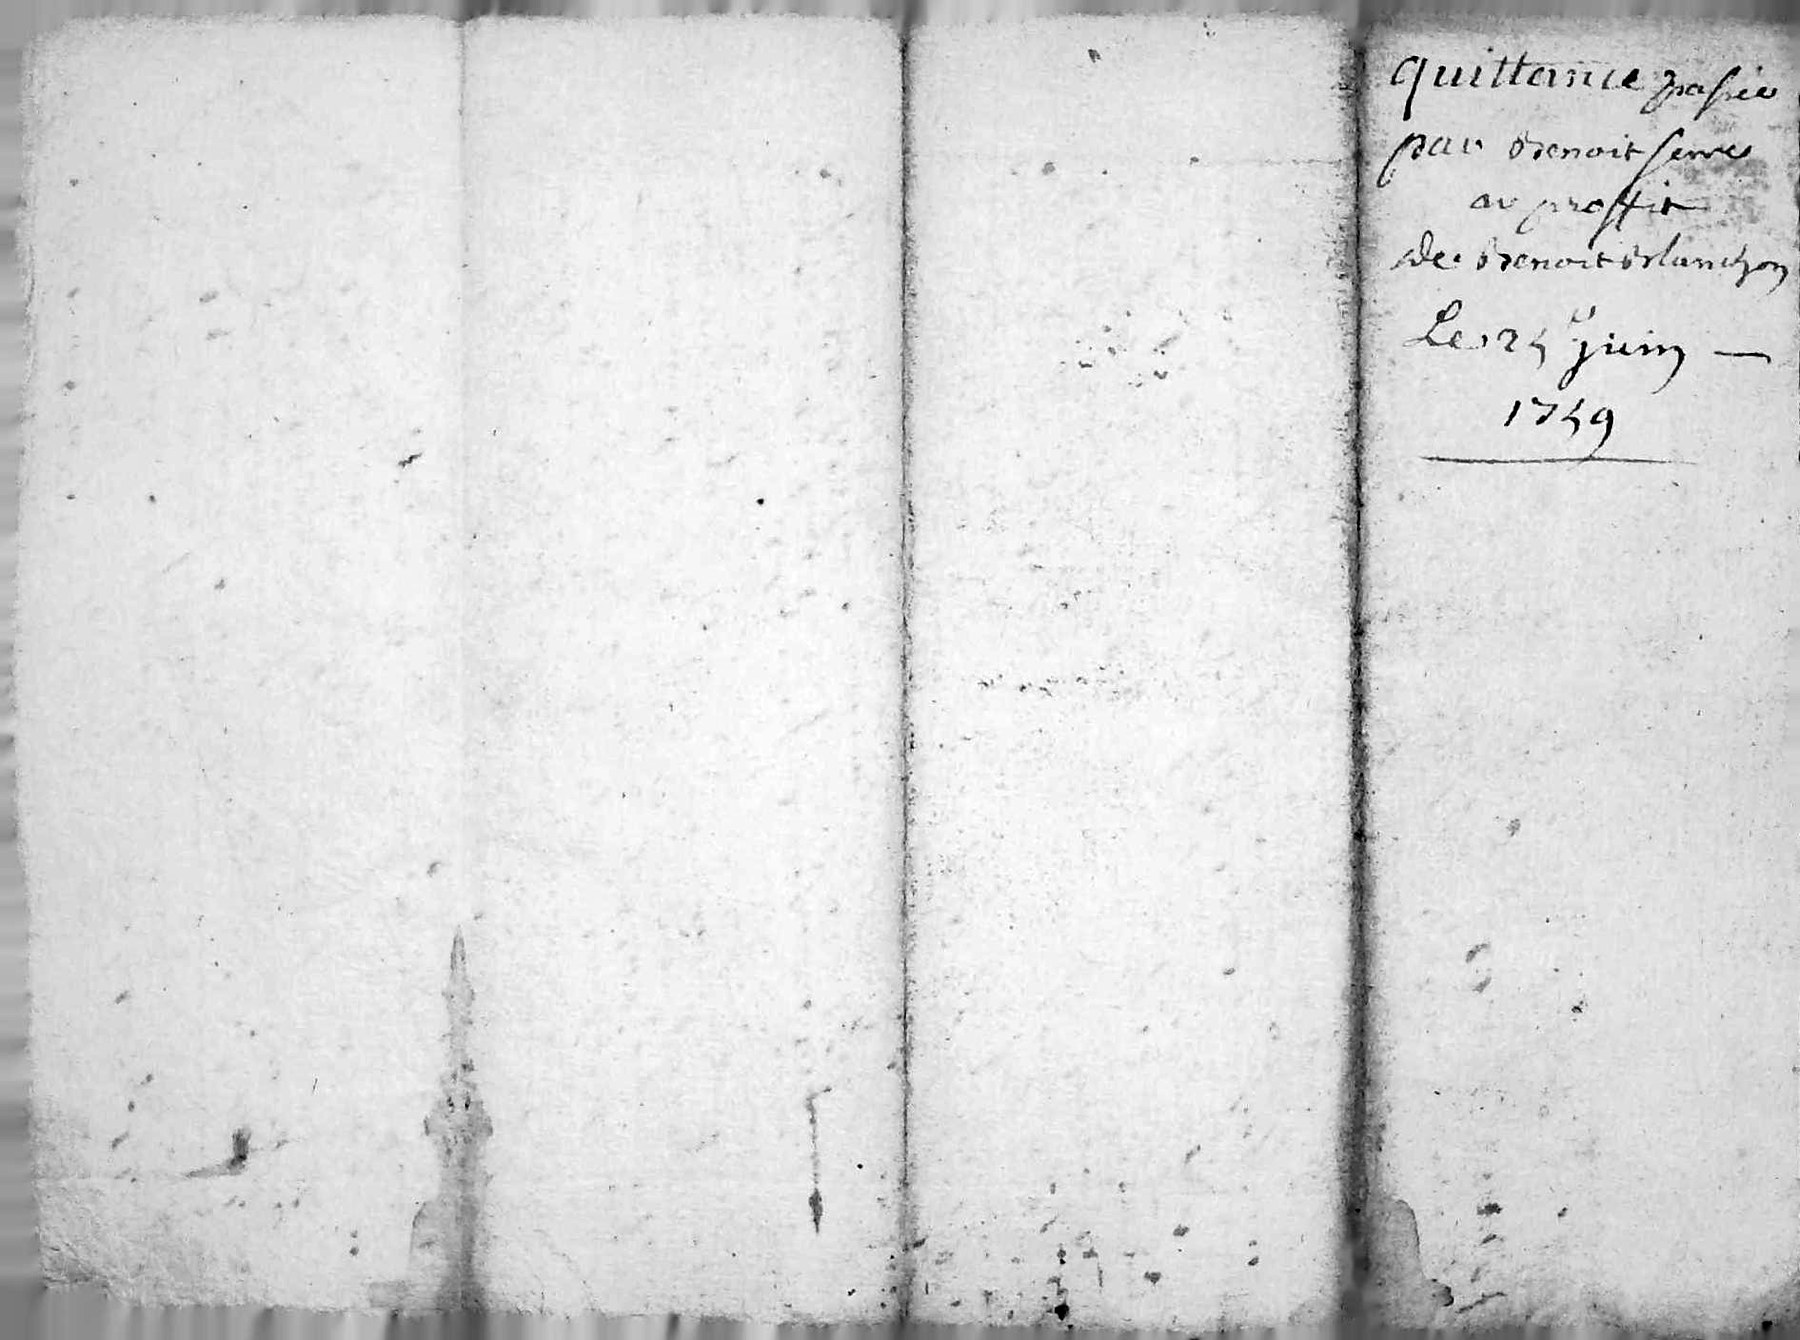 quittance passée
par Benoit serre
au proffit
de Benoit Blanchon
Le 25 juin —
1759